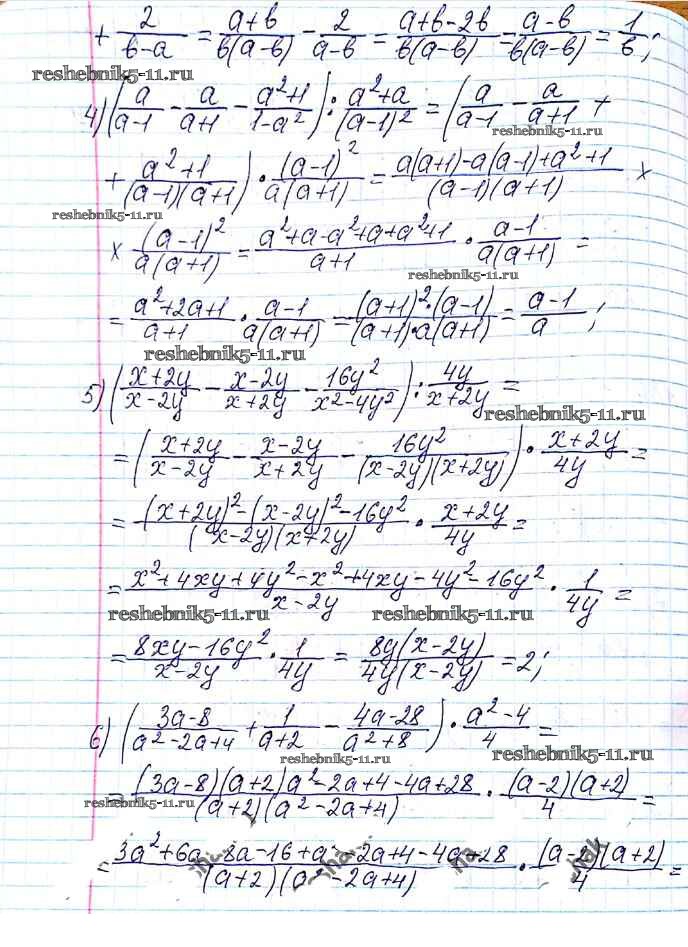 + 2/(в-a) = (a+в)/(в(a-в)) - 2/(a-в) = (a+в-2в)/(в(a-в)) = (a-в)/(в(a-в)) = 1/в;
reshebnik5-11.ru
4) (a/(a-1) - a/(a+1) - (a²+1)/(1-a²)) : (a²+a)/(a-1)² = (a/(a-1) - a/(a+1) +
reshebnik5-11.ru
+ (a²+1)/((a-1)(a+1))) · (a-1)²/(a(a+1)) = (a(a+1)-a(a-1)+a²+1)/((a-1)(a+1)) ×
reshebnik5-11.ru
× (a-1)²/(a(a+1)) = (a²+a-a²+a+a²+1)/(a+1) · (a-1)/(a(a+1)) =
reshebnik5-11.ru
= (a²+2a+1)/(a+1) · (a-1)/(a(a+1)) = ((a+1)²·(a-1))/((a+1)·a(a+1)) = (a-1)/a;
reshebnik5-11.ru
5) ((x+2y)/(x-2y) - (x-2y)/(x+2y) - 16y²/(x²-4y²)) : 4y/(x+2y) =
reshebnik5-11.ru
= ((x+2y)/(x-2y) - (x-2y)/(x+2y) - 16y²/((x-2y)(x+2y))) · (x+2y)/4y =
= ((x+2y)²-(x-2y)²-16y²)/((x-2y)(x+2y)) · (x+2y)/4y =
= (x²+4xy+4y²-x²+4xy-4y²-16y²)/(x-2y) · 1/4y =
reshebnik5-11.ru reshebnik5-11.ru
= (8xy-16y²)/(x-2y) · 1/4y = 8y(x-2y)/(4y(x-2y)) = 2;
6) ((3a-8)/(a²-2a+4) + 1/(a+2) - (4a-28)/(a²+8)) · (a²-4)/4 =
reshebnik5-11.ru reshebnik5-11.ru
= ((3a-8)(a+2)a²-2a+4-4a+28)/((a+2)(a²-2a+4)) · ((a-2)(a+2))/4 =
reshebnik5-11.ru
= (3a²+6a-8a-16+a²-2a+4-4a+28)/((a+2)(a²-2a+4)) · ((a-2)(a+2))/4 =